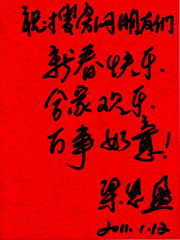 祝搜房网朋友们
新春快乐
合家欢乐
万事如意！
2011.1.12